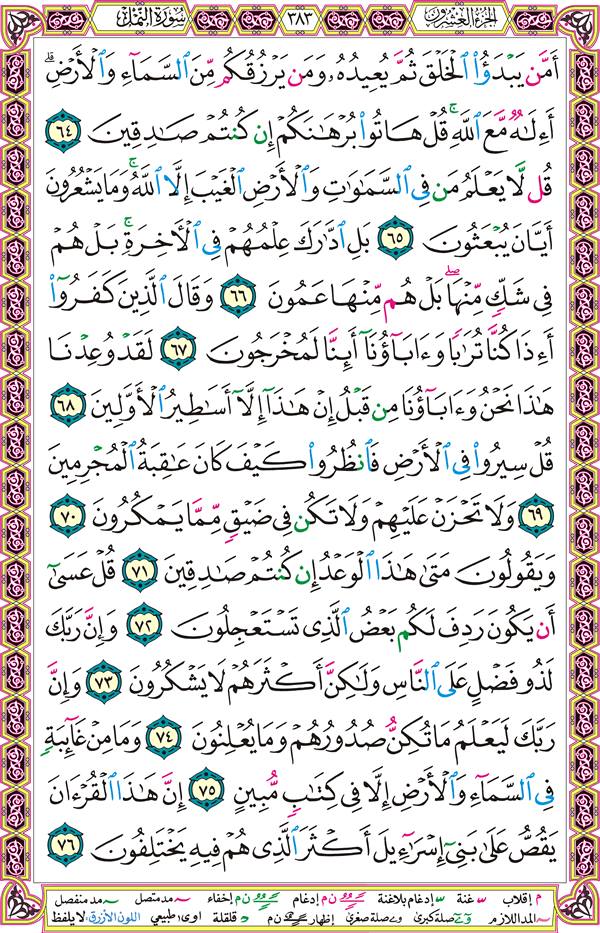 الجزء العشرون ٣٨٣ سورة النمل
أَمَّن يَبْدَؤُا۟ ٱلْخَلْقَ ثُمَّ يُعِيدُهُۥ وَمَن يَرْزُقُكُم مِّنَ ٱلسَّمَآءِ وَٱلْأَرْضِ ۗ
أَءِلَـٰهٌ مَّعَ ٱللَّهِ ۚ قُلْ هَاتُوا۟ بُرْهَـٰنَكُمْ إِن كُنتُمْ صَـٰدِقِينَ ٦٤
قُل لَّا يَعْلَمُ مَن فِى ٱلسَّمَـٰوَٰتِ وَٱلْأَرْضِ ٱلْغَيْبَ إِلَّا ٱللَّهُ ۚ وَمَا يَشْعُرُونَ
أَيَّانَ يُبْعَثُونَ ٦٥ بَلِ ٱدَّٰرَكَ عِلْمُهُمْ فِى ٱلْـَٔاخِرَةِ ۚ بَلْ هُمْ
فِى شَكٍّ مِّنْهَا ۖ بَلْ هُم مِّنْهَا عَمُونَ ٦٦ وَقَالَ ٱلَّذِينَ كَفَرُوٓا۟
أَءِذَا كُنَّا تُرَٰبًا وَءَابَآؤُنَآ أَئِنَّا لَمُخْرَجُونَ ٦٧ لَقَدْ وُعِدْنَا
هَـٰذَا نَحْنُ وَءَابَآؤُنَا مِن قَبْلُ إِنْ هَـٰذَآ إِلَّآ أَسَـٰطِيرُ ٱلْأَوَّلِينَ ٦٨
قُلْ سِيرُوا۟ فِى ٱلْأَرْضِ فَٱنظُرُوا۟ كَيْفَ كَانَ عَـٰقِبَةُ ٱلْمُجْرِمِينَ
٦٩ وَلَا تَحْزَنْ عَلَيْهِمْ وَلَا تَكُن فِى ضَيْقٍ مِّمَّا يَمْكُرُونَ ٧٠
وَيَقُولُونَ مَتَىٰ هَـٰذَا ٱلْوَعْدُ إِن كُنتُمْ صَـٰدِقِينَ ٧١ قُلْ عَسَىٰٓ
أَن يَكُونَ رَدِفَ لَكُم بَعْضُ ٱلَّذِى تَسْتَعْجِلُونَ ٧٢ وَإِنَّ رَبَّكَ
لَذُو فَضْلٍ عَلَى ٱلنَّاسِ وَلَـٰكِنَّ أَكْثَرَهُمْ لَا يَشْكُرُونَ ٧٣ وَإِنَّ
رَبَّكَ لَيَعْلَمُ مَا تُكِنُّ صُدُورُهُمْ وَمَا يُعْلِنُونَ ٧٤ وَمَا مِنْ غَآئِبَةٍ
فِى ٱلسَّمَآءِ وَٱلْأَرْضِ إِلَّا فِى كِتَـٰبٍ مُّبِينٍ ٧٥ إِنَّ هَـٰذَا ٱلْقُرْءَانَ
يَقُصُّ عَلَىٰ بَنِىٓ إِسْرَٰٓءِيلَ أَكْثَرَ ٱلَّذِى هُمْ فِيهِ يَخْتَلِفُونَ ٧٦
م إقلاب غنة إدغام بلاغنة ن م إدغام ن م إخفاء مد متصل مد منفصل
المد اللازم صلة كبرى صلة صغرى إظهار ن م قلقلة اوى طبيعي اللون الأزرق: لا يلفظ